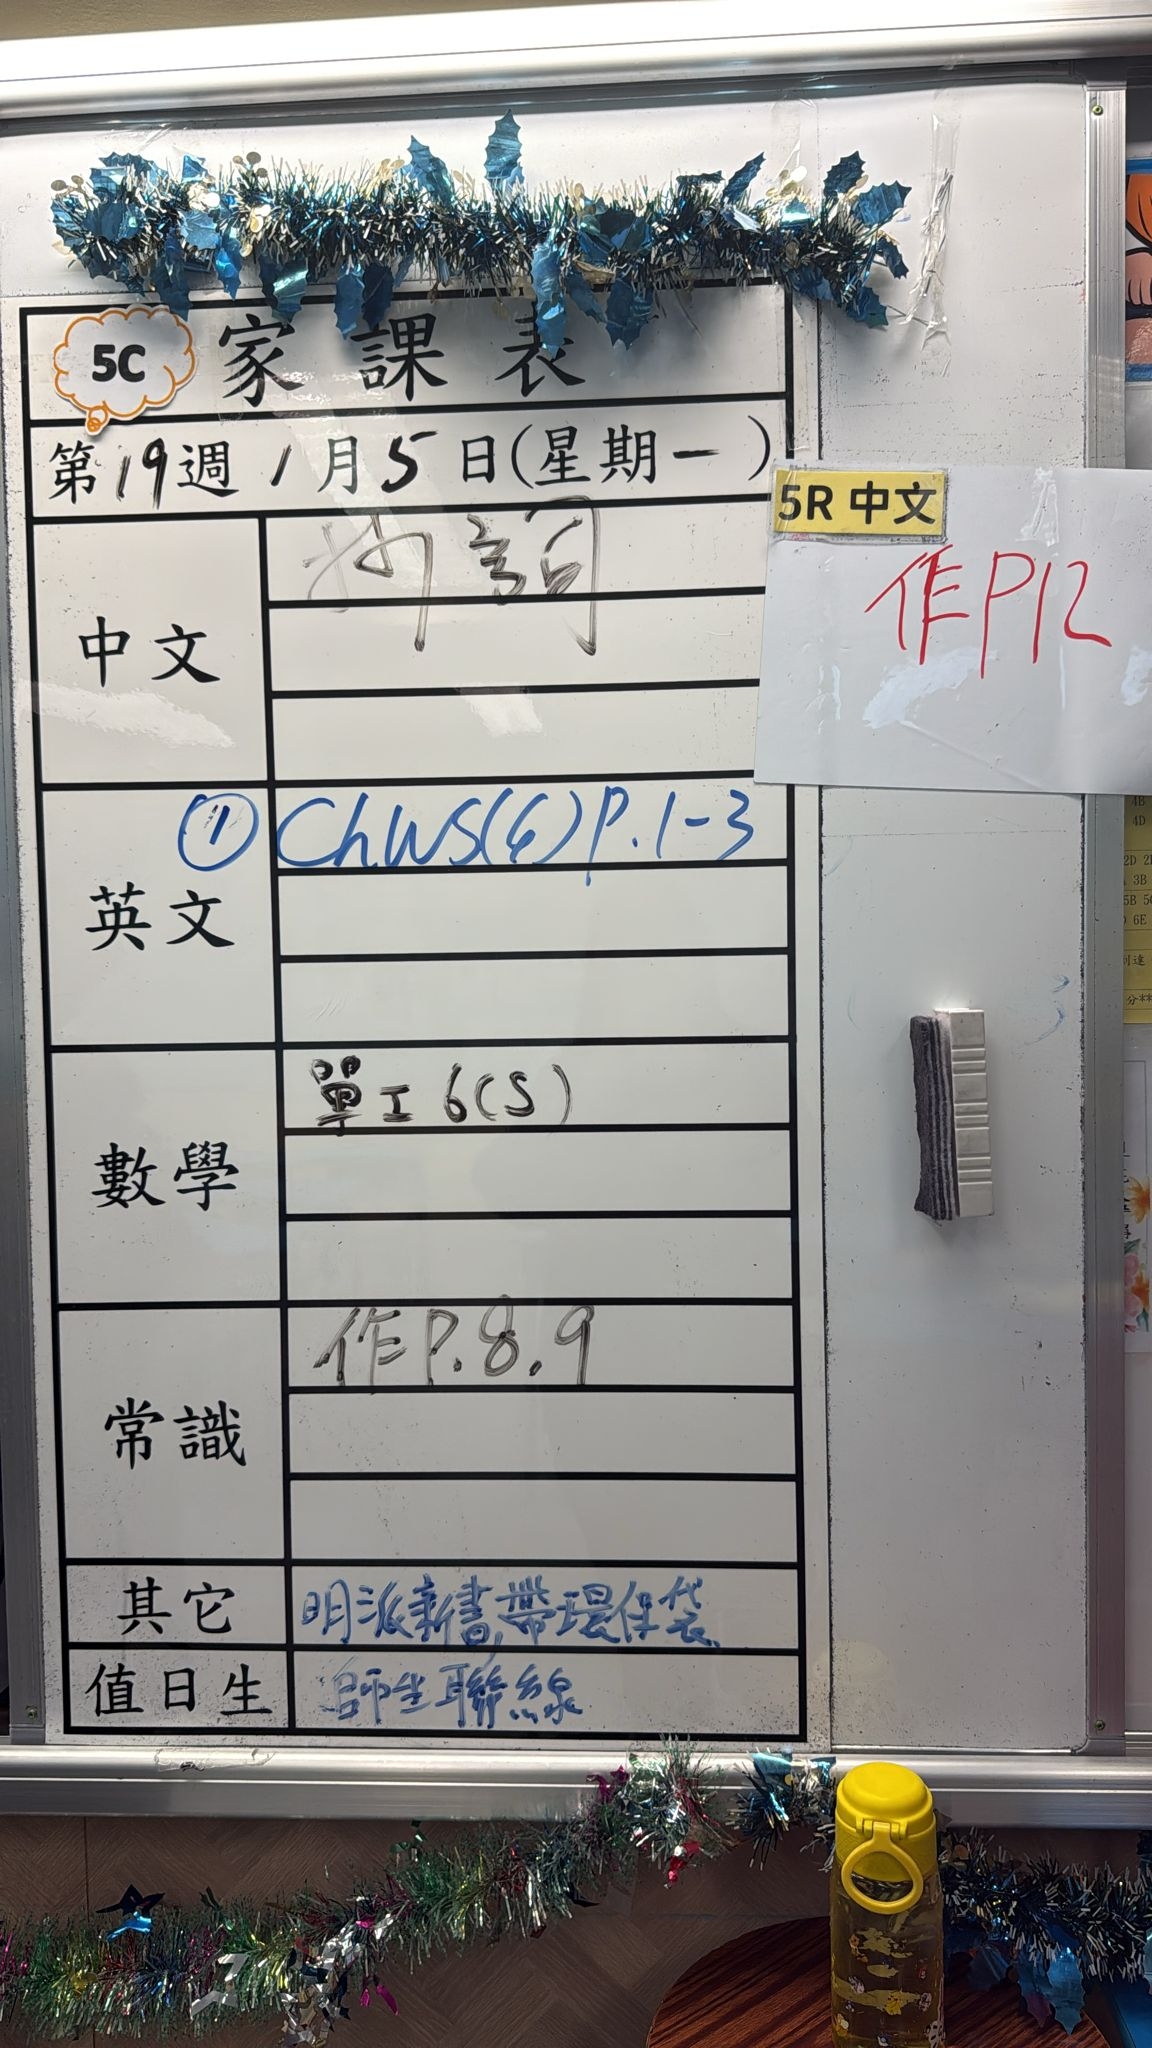 5C 家課表
第19週 1月5日(星期一)
5R 中文
作P12
中文
詞
英文
① Ch.WS(6)P.1-3
數學
單工6(S)
常識
作P.8,9
其它
明派新書,帶環保袋
值日生
師生聯線
4B
4D
3B
6E